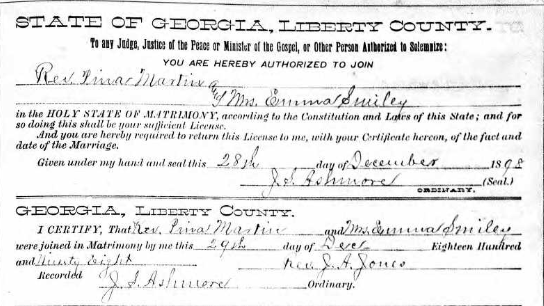 STATE OF GEORGIA, LIBERTY COUNTY.
To any Judge, Justice of the Peace or Minister of the Gospel, or Other Person Authorized to Solemnize:
YOU ARE HEREBY AUTHORIZED TO JOIN
Rev. Martin
& Mrs. Emma Smiley
in the HOLY STATE OF MATRIMONY, according to the Constitution and Laws of this State; and for
so doing this shall be your sufficient License.
And you are hereby required to return this License to me, with your Certificate hereon, of the fact and
date of the Marriage.
Given under my hand and seal this 28th day of December 1898
J. S. Ashmore (Seal.)
ORDINARY.
GEORGIA, LIBERTY COUNTY.
I CERTIFY, That Rev. Martin and Mrs. Emma Smiley
were joined in Matrimony by me this 29th day of Dec Eighteen Hundred
and Ninety Eight Rev. J. A. Jones
Recorded J. S. Ashmore Ordinary.